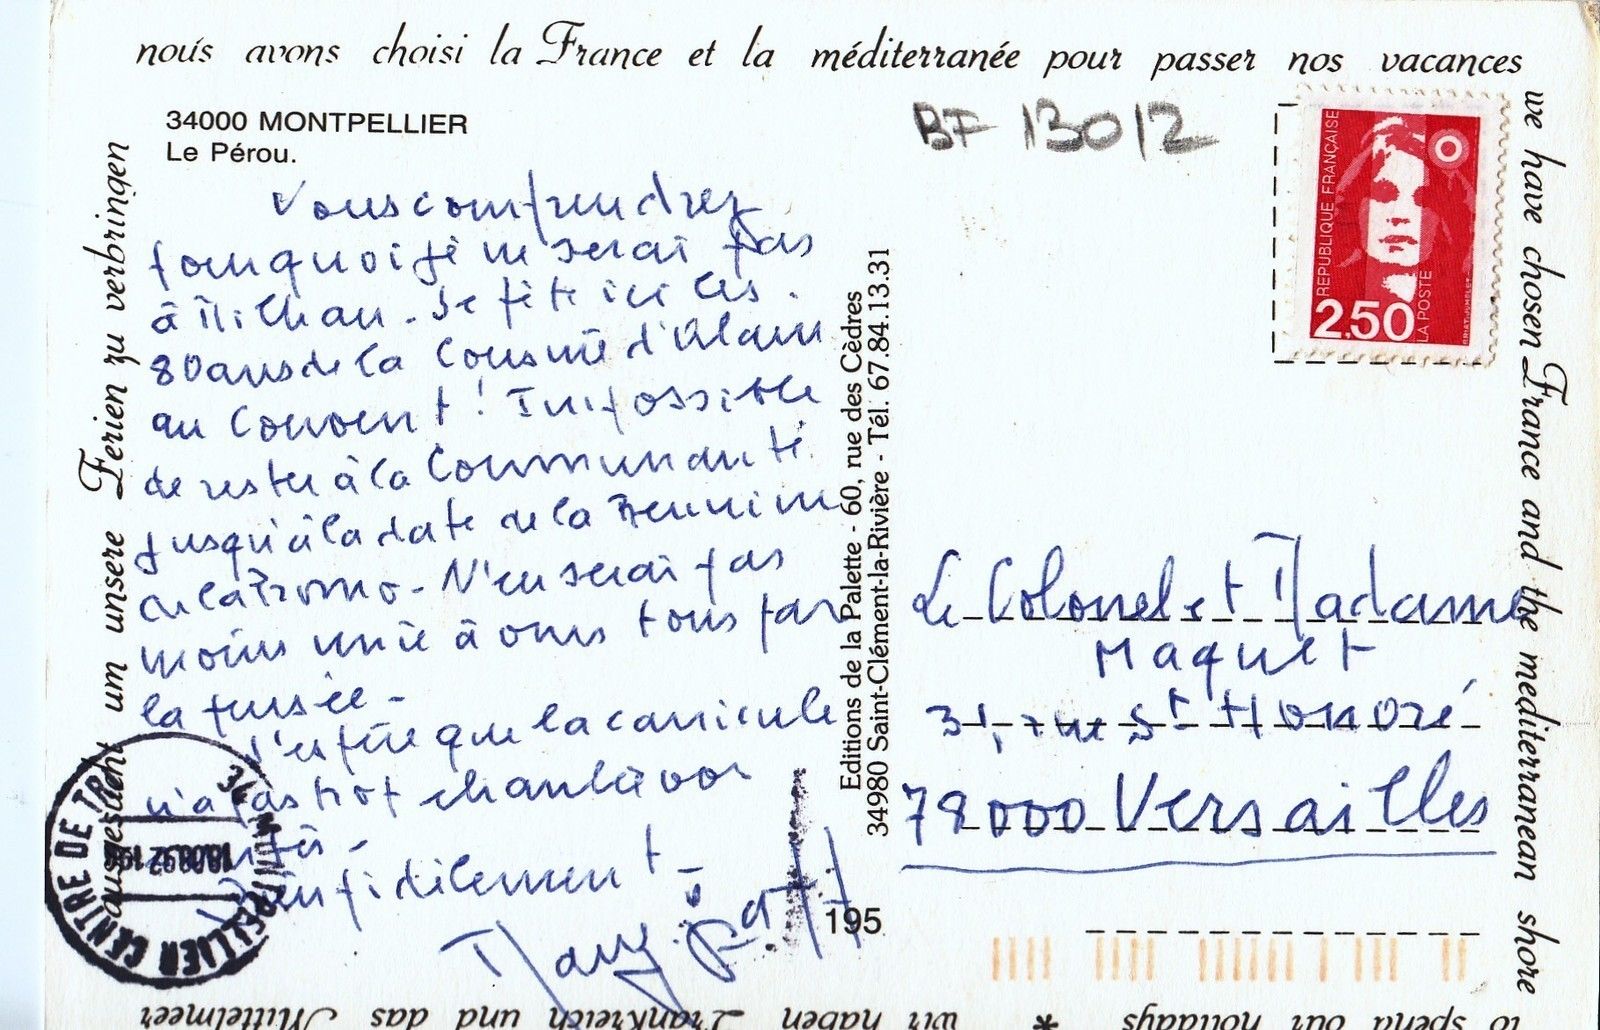 nous avons choisi la France et la méditerranée pour passer nos vacances
we have chosen France and the mediterranean shore
to spend our holidays *
wir haben Frankreich und das Mittelmeer
ausgesucht um unsere Ferien zu verbringen
34000 MONTPELLIER
Le Pérou.
BF 13012
REPUBLIQUE FRANÇAISE
2,50
LA POSTE
Vous comprendrez
pourquoi je ne serai pas
à Milhau. Je fête ici les
80 ans de la Cousine d'Alain
au Couvent! Impossible
de rester à la Communauté
jusqu'à la date de la Réunion
de la Promo. N'en serai pas
moins unie à vous tous par
la pensée.
J'espère que la canicule
n'a pas trop
Bien fidèlement
Editions de la Palette - 60, rue des Cèdres
34980 Saint-Clément-la-Rivière - Tél. 67.84.13.31
Le Colonel et Madame
Maquet
31, rue St Honoré
78000 Versailles
195
MONTPELLIER CENTRE DE TRI